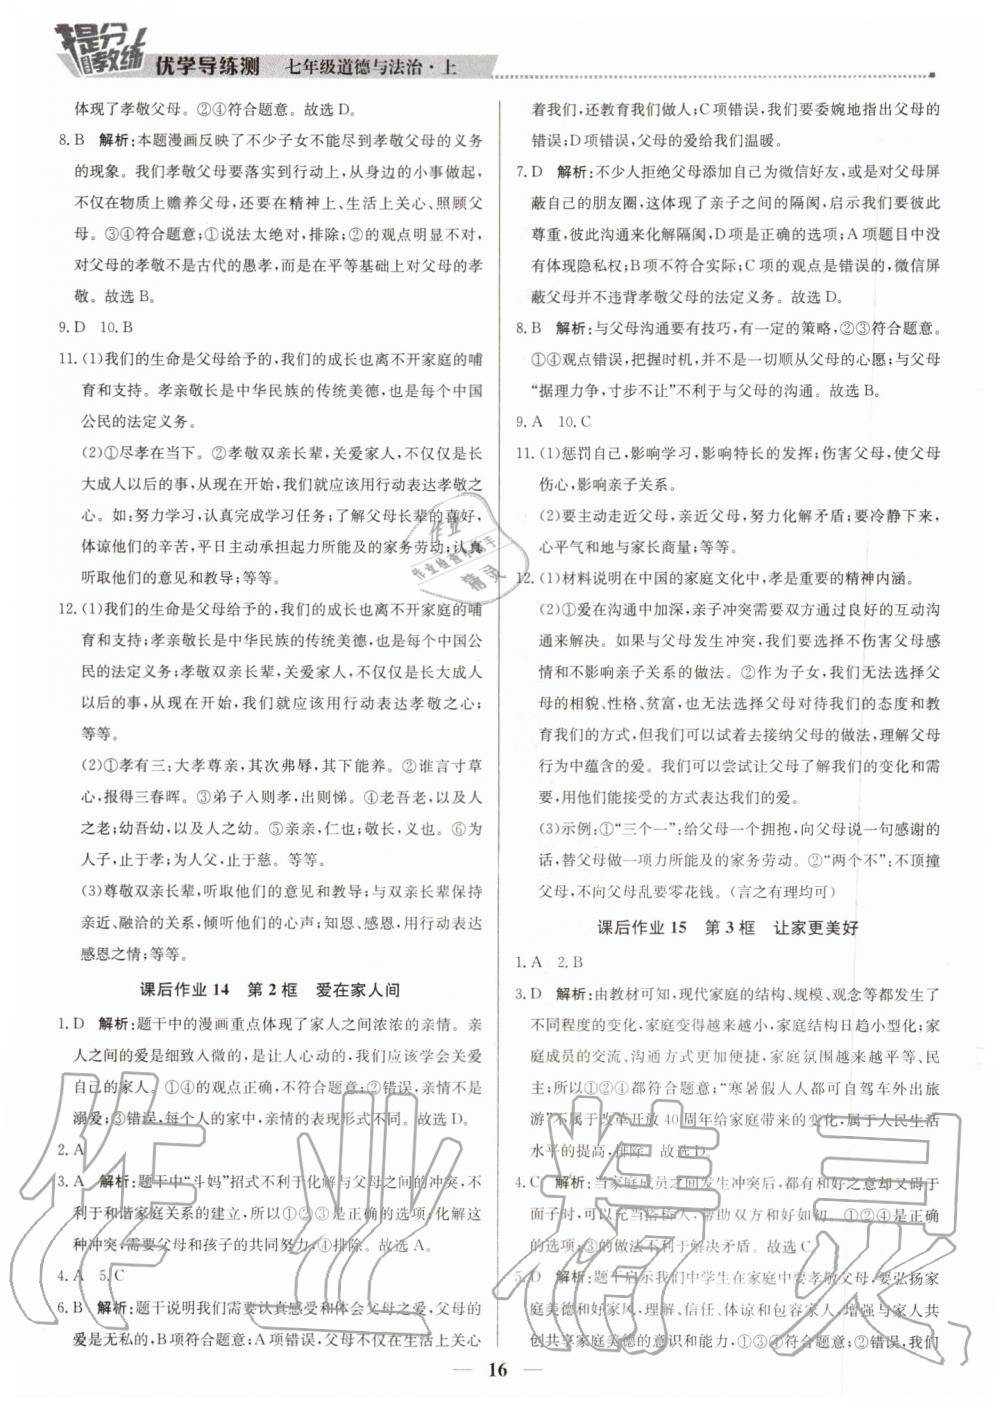 提分教练
优学导练测 七年级道德与法治·上
体现了孝敬父母。②④符合题意。故选 D。
8. B 解析:本题漫画反映了不少子女不能尽到孝敬父母的义务
的现象。我们孝敬父母要落实到行动上,从身边的小事做起,
不仅在物质上赡养父母,还要在精神上、生活上关心、照顾父
母。③④符合题意;①说法太绝对,排除;②的观点明显不对,
对父母的孝敬不是古代的愚孝,而是在平等基础上对父母的孝
敬。故选 B。
9. D 10. B
11. (1)我们的生命是父母给予的,我们的成长也离不开家庭的哺
育和支持。孝亲敬长是中华民族的传统美德,也是每个中国
公民的法定义务。
(2)①尽孝在当下。②孝敬双亲长辈,关爱家人,不仅仅是长
大成人以后的事,从现在开始,我们就应该用行动表达孝敬之
心。如:努力学习,认真完成学习任务;了解父母长辈的喜好,
体谅他们的辛苦,平日主动承担起力所能及的家务劳动;认真
听取他们的意见和教导;等等。
12. (1)我们的生命是父母给予的,我们的成长也离不开家庭的哺
育和支持;孝亲敬长是中华民族的传统美德,也是每个中国公
民的法定义务;孝敬双亲长辈,关爱家人,不仅仅是长大成人
以后的事,从现在开始,我们就应该用行动表达孝敬之心;
等等。
(2)①孝有三:大孝尊亲,其次弗辱,其下能养。②谁言寸草
心,报得三春晖。③弟子入则孝,出则悌。④老吾老,以及人
之老;幼吾幼,以及人之幼。⑤亲亲,仁也;敬长,义也。⑥为
人子,止于孝;为人父,止于慈。等等。
(3)尊敬双亲长辈,听取他们的意见和教导;与双亲长辈保持
亲近、融洽的关系,倾听他们的心声;知恩、感恩,用行动表达
感恩之情;等等。
课后作业 14 第 2 框 爱在家人间
1. D 解析:题干中的漫画重点体现了家人之间浓浓的亲情。亲
人之间的爱是细致入微的,是让人心动的,我们应该学会关爱
自己的家人。①④的观点正确,不符合题意;②错误,亲情不是
溺爱;③错误,每个人的家中,亲情的表现形式不同。故选 D。
2. A
3. A 解析:题干中“斗妈”招式不利于化解与父母的冲突,不
利于和谐家庭关系的建立,所以①②③是正确的选项;化解这
种冲突,需要父母和孩子的共同努力;④排除。故选 A。
4. A 5. C
6. B 解析:题干说明我们需要认真感受和体会父母之爱,父母的
爱是无私的,B项符合题意;A项错误,父母不仅在生活上关心
着我们,还教育我们做人;C项错误,我们要委婉地指出父母的
错误;D项错误,父母的爱给我们温暖。
7. D 解析:不少人拒绝父母添加自己为微信好友,或是对父母屏
蔽自己的朋友圈,这体现了亲子之间的隔阂,启示我们要彼此
尊重,彼此沟通来化解隔阂,D项是正确的选项;A项题目中没
有体现隐私权;B项不符合实际;C项的观点是错误的,微信屏
蔽父母并不违背孝敬父母的法定义务。故选 D。
8. B 解析:与父母沟通要有技巧,有一定的策略,②③符合题意。
①④观点错误,把握时机,并不是一切顺从父母的心愿;与父母
“据理力争,寸步不让”不利于与父母的沟通。故选 B。
9. A 10. C
11. (1)惩罚自己,影响学习,影响特长的发挥;伤害父母,使父母
伤心,影响亲子关系。
(2)要主动走近父母,亲近父母,努力化解矛盾;要冷静下来,
心平气和地与家长商量;等等。
12. (1)材料说明在中国的家庭文化中,孝是重要的精神内涵。
(2)①爱在沟通中加深,亲子冲突需要双方通过良好的互动沟
通来解决。如果与父母发生冲突,我们要选择不伤害父母感
情和不影响亲子关系的做法。②作为子女,我们无法选择父
母的相貌、性格、贫富,也无法选择父母对待我们的态度和教
育我们的方式,但我们可以试着去接纳父母的做法,理解父母
行为中蕴含的爱。我们可以尝试让父母了解我们的变化和需
要,用他们能接受的方式表达我们的爱。
(3)示例:①“三个一”:给父母一个拥抱,向父母说一句感谢的
话,替父母做一项力所能及的家务劳动。②“两个不”:不顶撞
父母,不向父母乱要零花钱。(言之有理均可)
课后作业 15 第 3 框 让家更美好
1. A 2. B
3. D 解析:由教材可知,现代家庭的结构、规模、观念等都发生了
不同程度的变化,家庭变得越来越小,家庭结构日趋小型化;家
庭成员的交流、沟通方式更加便捷,家庭氛围越来越平等、民
主,所以①②④都符合题意;“寒暑假人人都可自驾车外出旅
游”不属于改革开放 40 周年给家庭带来的变化,属于人民生活
水平的提高,排除。故选 D。
4. C 解析:当家庭成员之间发生冲突后,都有和好之意却又碍于
面子时,可以充当搭桥人,帮助双方和好如初。①②④是正确
的选项;③的做法不利于解决矛盾。故选 C。
5. D 解析:题干启示我们中学生在家庭中要孝敬父母,要弘扬家
庭美德和好家风,理解、信任、体谅和包容家人,增强与家人共
创共享家庭美德的意识和能力,①③④符合题意;②错误,我们
16
作业
作业检查小助手
精灵
作业精灵